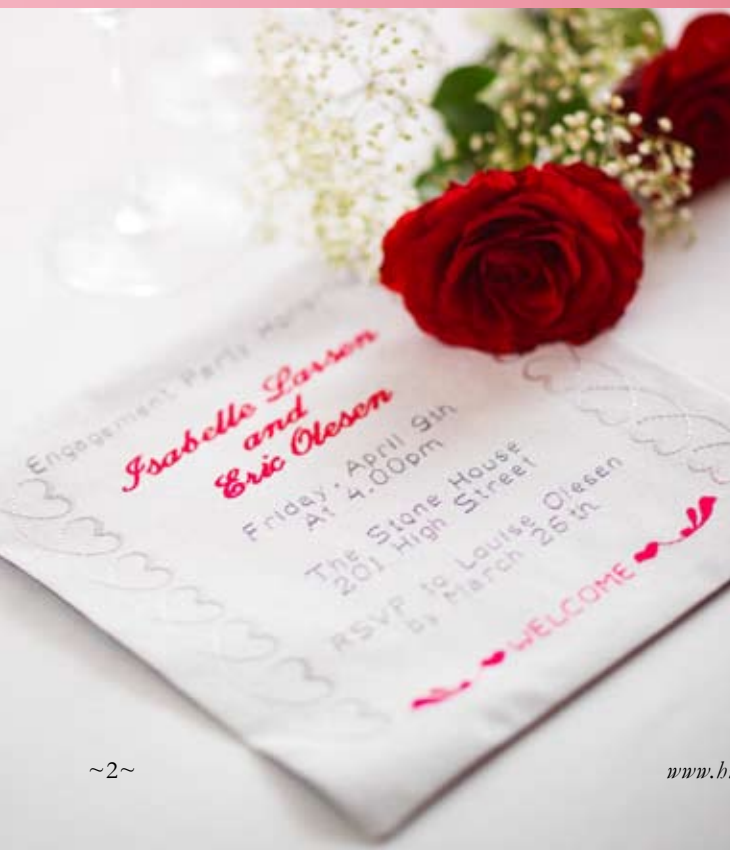 Engagement Party
Isabelle Larsen
and
Eric Olesen
Friday, April 9th
At 4.00pm
The Stone House
201 High Street
RSVP to Louise Olesen
by March 26th
WELCOME
~2~
www.h